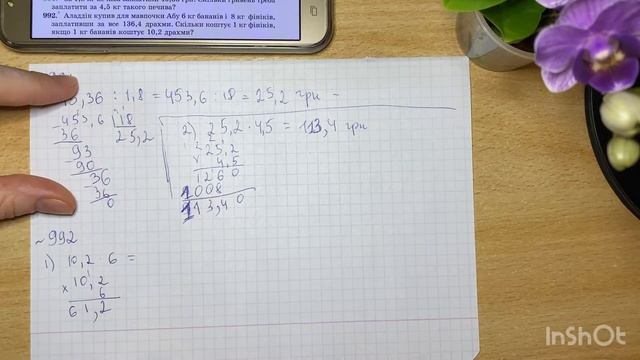 заплатити за 4,5 кг такого печива?
992. Аладдін купив для мавпочки Абу 6 кг бананів і 8 кг фініків,
заплативши за все 136,4 драхми. Скільки коштує 1 кг фініків,
якщо 1 кг бананів коштує 10,2 драхми?
,36 : 1,8 = 453,6 : 18 = 25,2 грн
453,6 | 18
36 25,2
93
90
36
36
0
2) 25,2 · 4,5 = 113,4 грн
× 25,2
4,5
1260
1008
113,40
~992
1) 10,2 · 6 =
× 10,2
6
61,2
InShOt